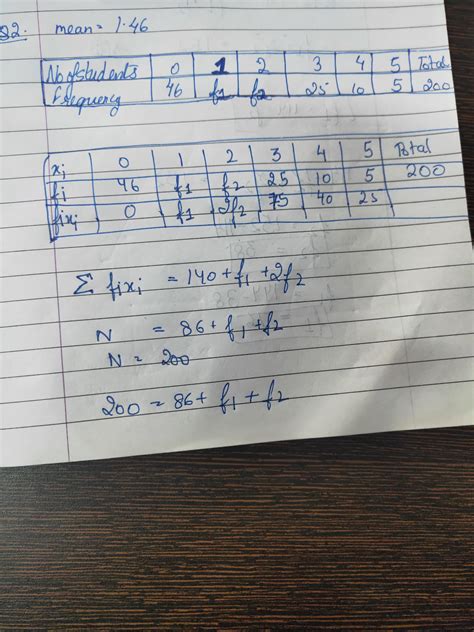 Q2. mean = 1.46
No of students 0 1 2 3 4 5 Total
frequency 46 f1 f2 25 10 5 200
xi 0 1 2 3 4 5 Total
fi 46 f1 f2 25 10 5 200
fixi 0 f1 2f2 75 40 25
Σ fixi = 140 + f1 + 2f2
N = 86 + f1 + f2
N = 200
200 = 86 + f1 + f2